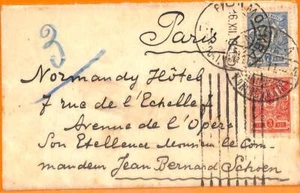 3
Paris
Normandy Hôtel
7 rue de l'Echelle
Avenue de l'Opera
Son Exellence Monsieur le Com-
mandeur Jean Bernard Schoen